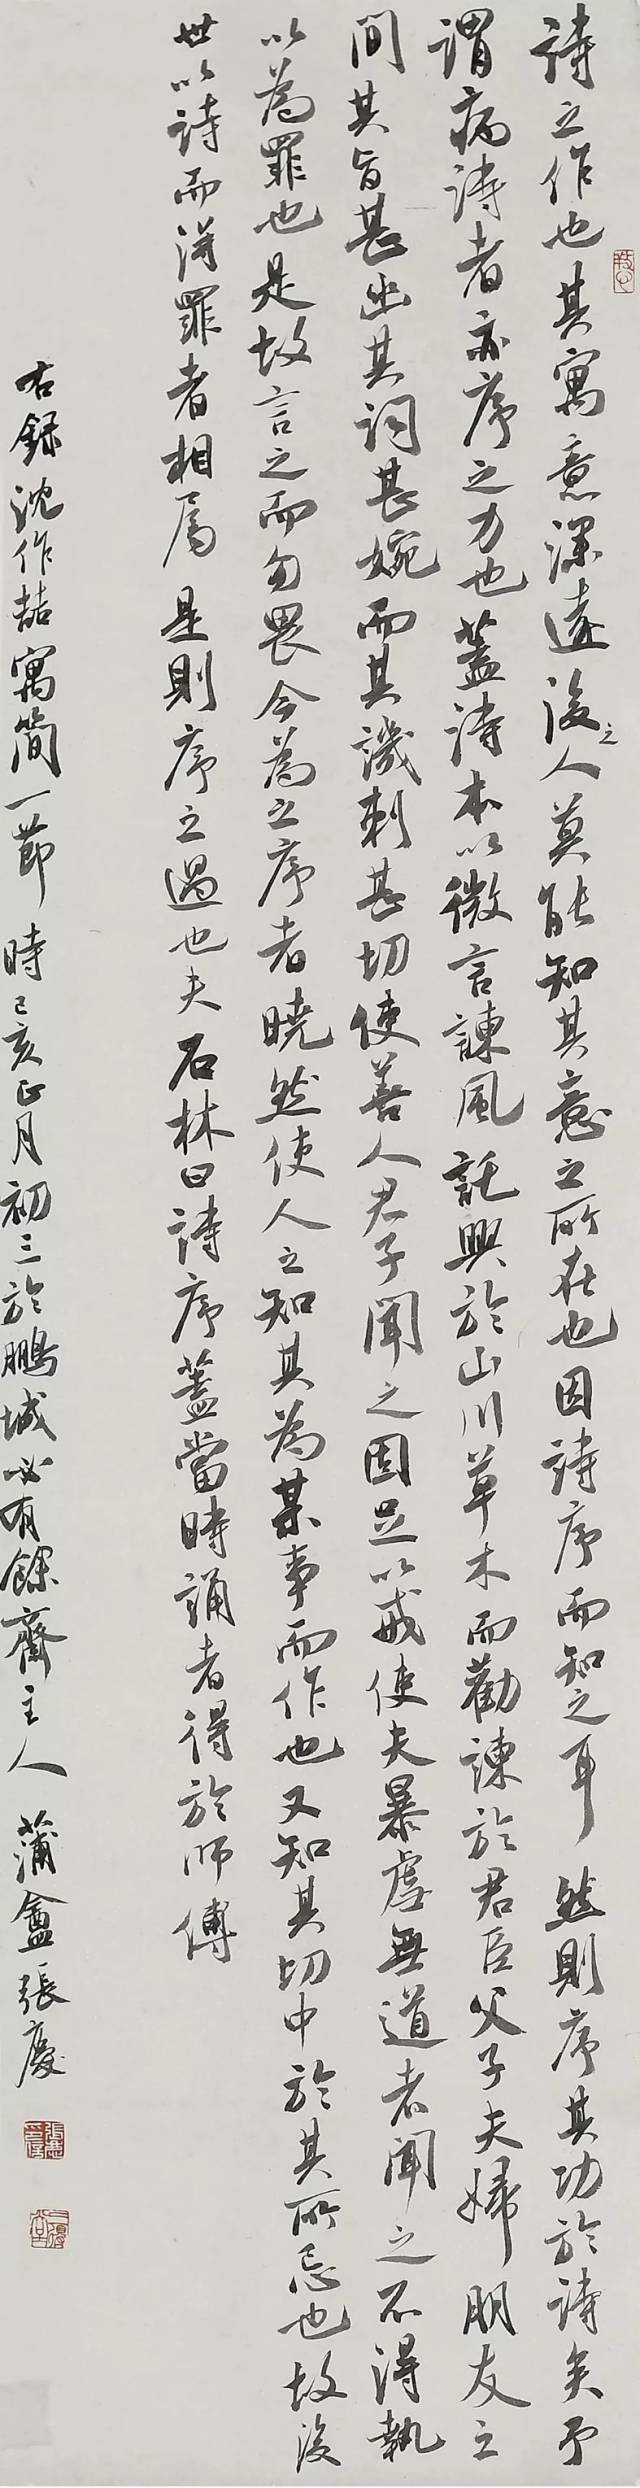 詩之作也其寓意深遠後之人莫能知其意之所在也因詩序而知之耳然則序其功於詩矣予
謂病詩者亦序之力也蓋詩本以微言諫風託興於山川草木而勸諫於君臣父子夫婦朋友之
間其旨甚幽其詞甚婉而其譏刺甚切使善人君子聞之固足以戒使夫暴虐無道者聞之不得執
以為罪也是故言之而勿畏今為之序者曉然使人之知其為某事而作也又知其切中於其所忌也故後
世以詩而得罪者相屬是則序之過也夫石林曰詩序蓋當時誦者得於師傅
右錄沈作喆寓簡一節時己亥正月初三於鵬城必有餘齋主人蒲盦張慶